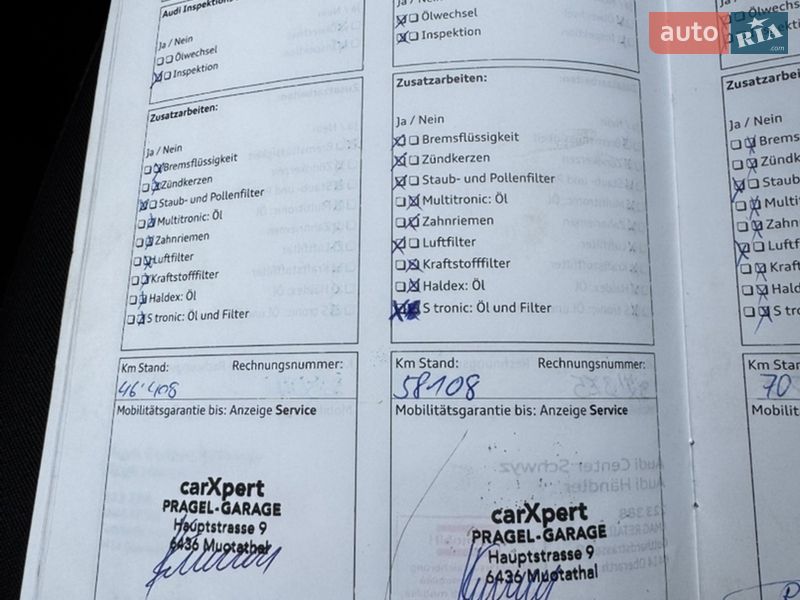 Audi Inspektions
Ja / Nein
Ölwechsel
Inspektion
Zusatzarbeiten:
Ja / Nein
Bremsflüssigkeit
Zündkerzen
Staub- und Pollenfilter
Multitronic: Öl
Zahnriemen
Luftfilter
Kraftstofffilter
Haldex: Öl
S tronic: Öl und Filter
Km Stand: Rechnungsnummer:
46'408
Mobilitätsgarantie bis: Anzeige Service
carXpert
PRAGEL-GARAGE
Hauptstrasse 9
6436 Muotathal
Ölwechsel
Inspektion
Zusatzarbeiten:
Ja / Nein
Bremsflüssigkeit
Zündkerzen
Staub- und Pollenfilter
Multitronic: Öl
Zahnriemen
Luftfilter
Kraftstofffilter
Haldex: Öl
S tronic: Öl und Filter
Km Stand: Rechnungsnummer:
58108
Mobilitätsgarantie bis: Anzeige Service
carXpert
PRAGEL-GARAGE
Hauptstrasse 9
6436 Muotathal
auto RIA .com
Zusatzarbeiten:
Ja / Nein
Brems
Zündk
Staub
Multi
Zahn
Luftf
Kraft
Hald
S tro
Km Stand:
70
Mobilit